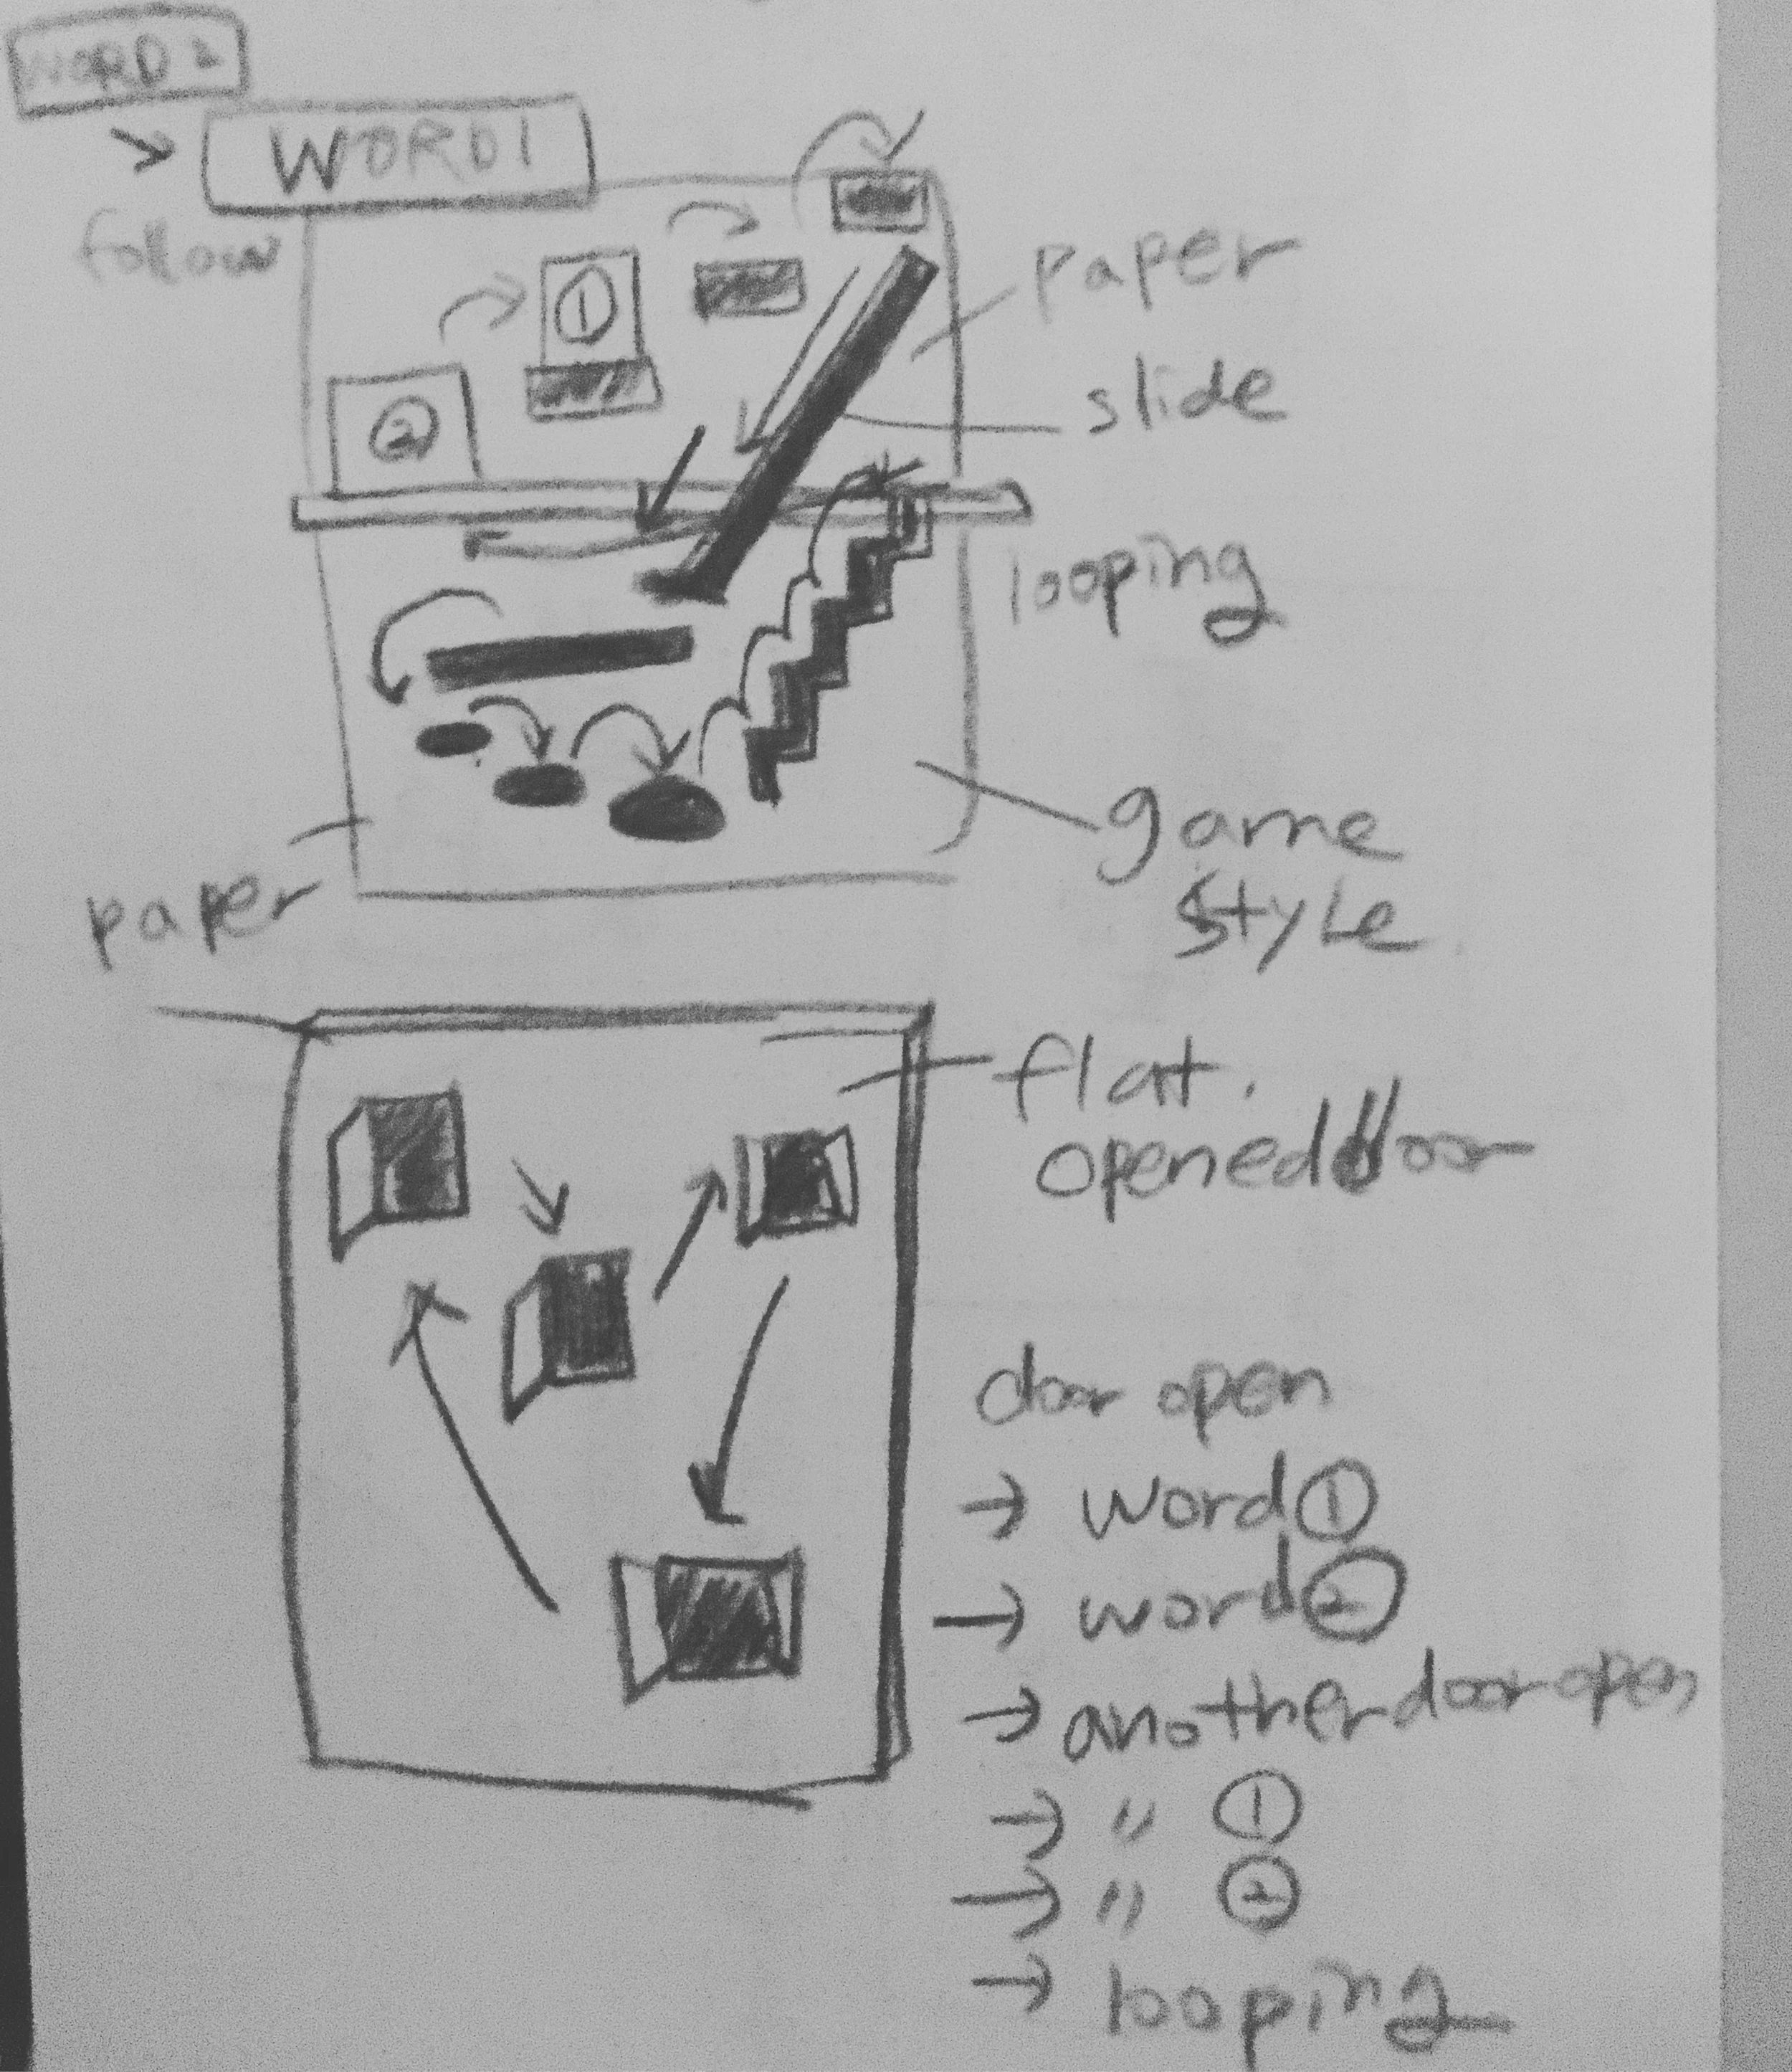 WORD 2
WORD 1
follow
①
②
paper
slide
looping
game
style
paper
flat.
opened door
door open
→ word ①
→ word ②
→ another door open
→ " ①
→ " ②
→ looping